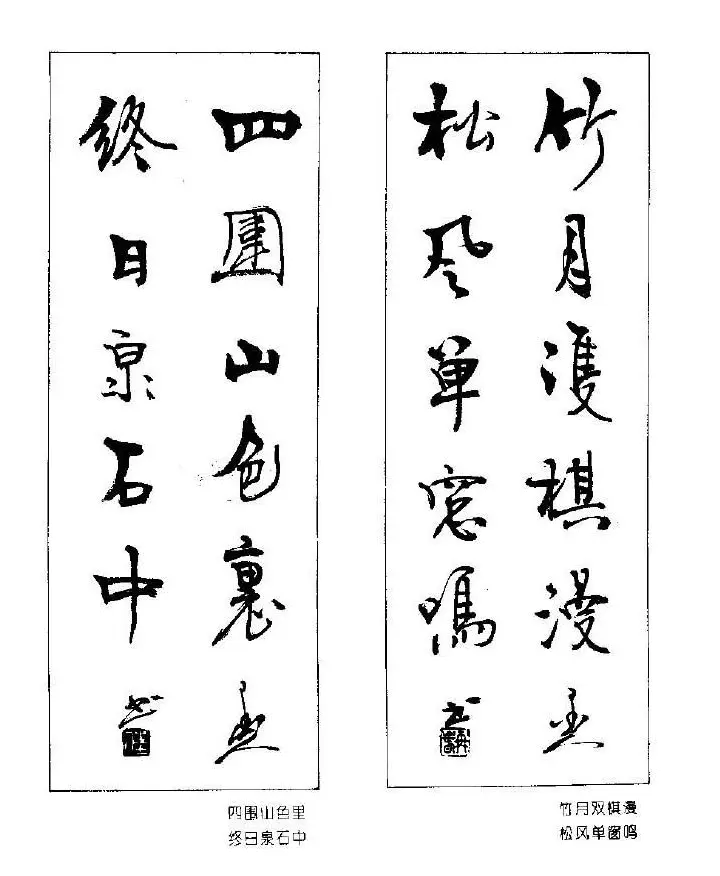 竹月雙棋漫
松风單窓鳴
竹月双棋漫
松风单窗鸣
四圍山色裏
終日泉石中
四围山色里
终日泉石中